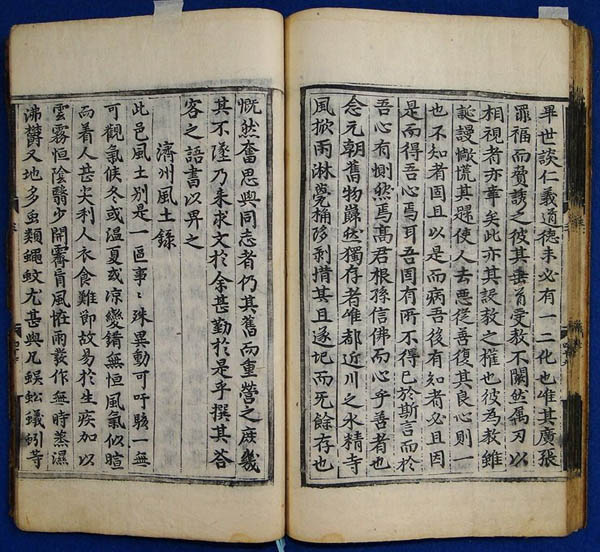 畢世談仁義道德未必有一二化也惟其廣張
罪福而誘之彼其垂育愛教不闕然属刃以
相視者亦章矣此亦其設教之權也彼為教雖
誕謾慌其使人去悪從善復其良心則一
也不知者固且以是而病吾後有知者必且因
是而得吾心焉耳吾固有所不得已於斯言而於
吾心有惻然焉高君根孫信佛而心乎善者也
念元朝舊物巋然獨存者惟都近川之水精寺
風掀雨淋甍桷陊剥其且遂圮而死餘存也
慨然奮思與同志者仍其舊而重營之庶幾
其不墜乃来求文於余甚勤於是乎撰其荅
客之語書以畀之
濟州風土錄
此邑風土別是一區事〻殊異動可吁駭一無
可觀氣候冬或温夏或凉變錯無恒風氣似暄
而着人甚尖利人衣食難節故易於生疾加以
雲霧恒陰翳少開霽盲風恠雨發作無時蒸濕
沸欝又地多虫類蠅蚊尤甚與凡蜈蚣蟻蚓等